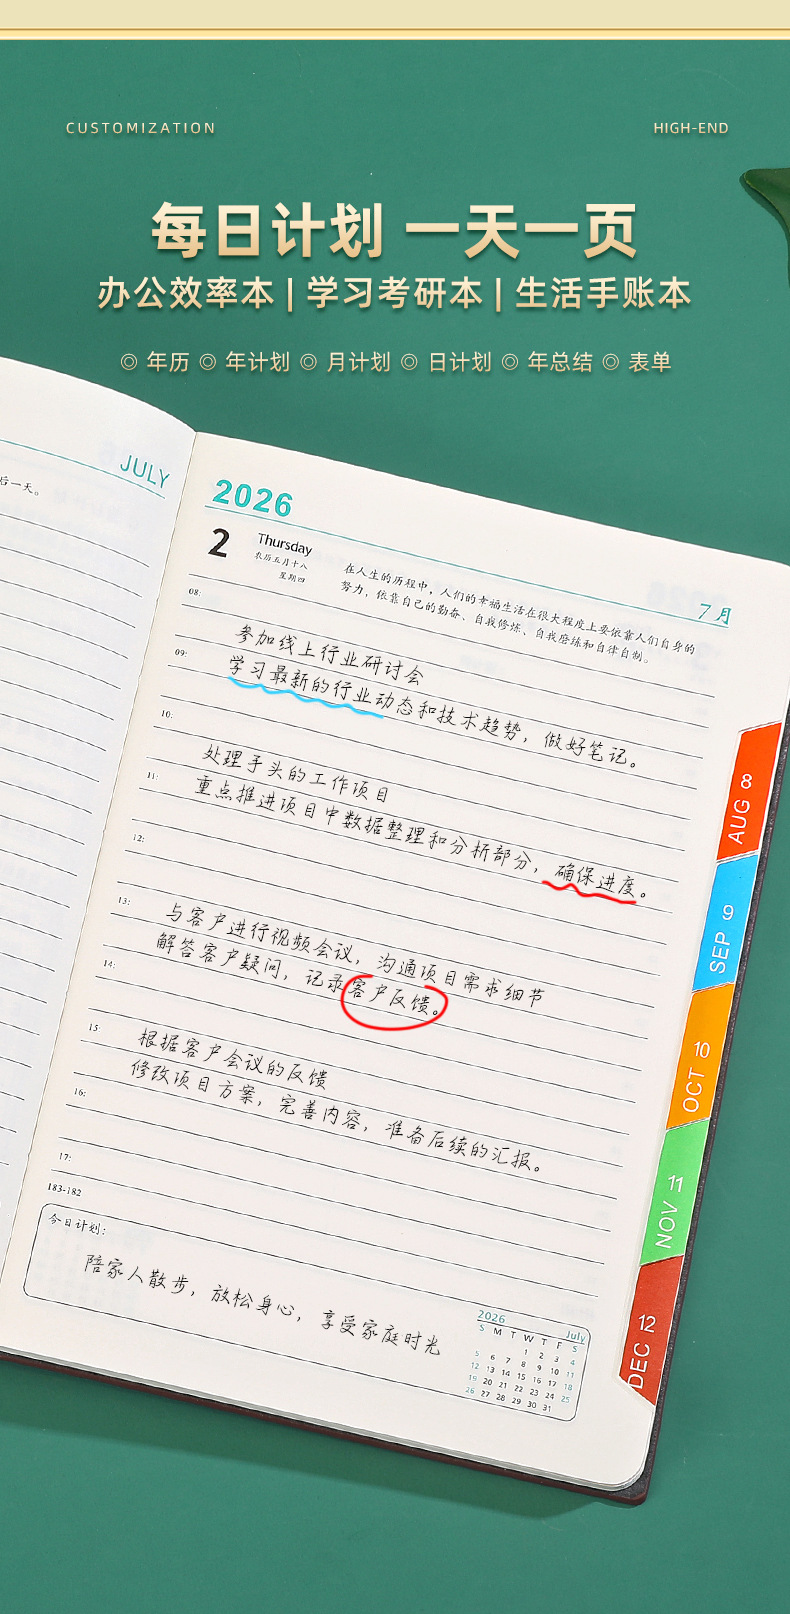 CUSTOMIZATION
HIGH-END
每日计划 一天一页
办公效率本 | 学习考研本 | 生活手账本
◎ 年历 ◎ 年计划 ◎ 月计划 ◎ 日计划 ◎ 年总结 ◎ 表单
JULY
后一天。
2026
7月
2 Thursday
农历五月十八
星期四
在人生的历程中，人们的幸福生活在很大程度上要依靠人们自身的
努力，依靠自己的勤奋、自我修炼、自我磨练和自律自制。
08:
参加线上行业研讨会
09:
学习最新的行业动态和技术趋势，做好笔记。
10:
处理手头的工作项目
11:
重点推进项目中数据整理和分析部分，确保进度。
12:
13:
与客户进行视频会议，沟通项目需求细节
14:
解答客户疑问，记录客户反馈。
15:
根据客户会议的反馈
修改项目方案，完善内容，准备后续的汇报。
16:
17:
183-182
今日计划：
陪家人散步，放松身心，享受家庭时光
2026 July
S M T W T F S
1 2 3 4
5 6 7 8 9 10 11
12 13 14 15 16 17 18
19 20 21 22 23 24 25
26 27 28 29 30 31
AUG 8
SEP 9
OCT 10
NOV 11
DEC 12